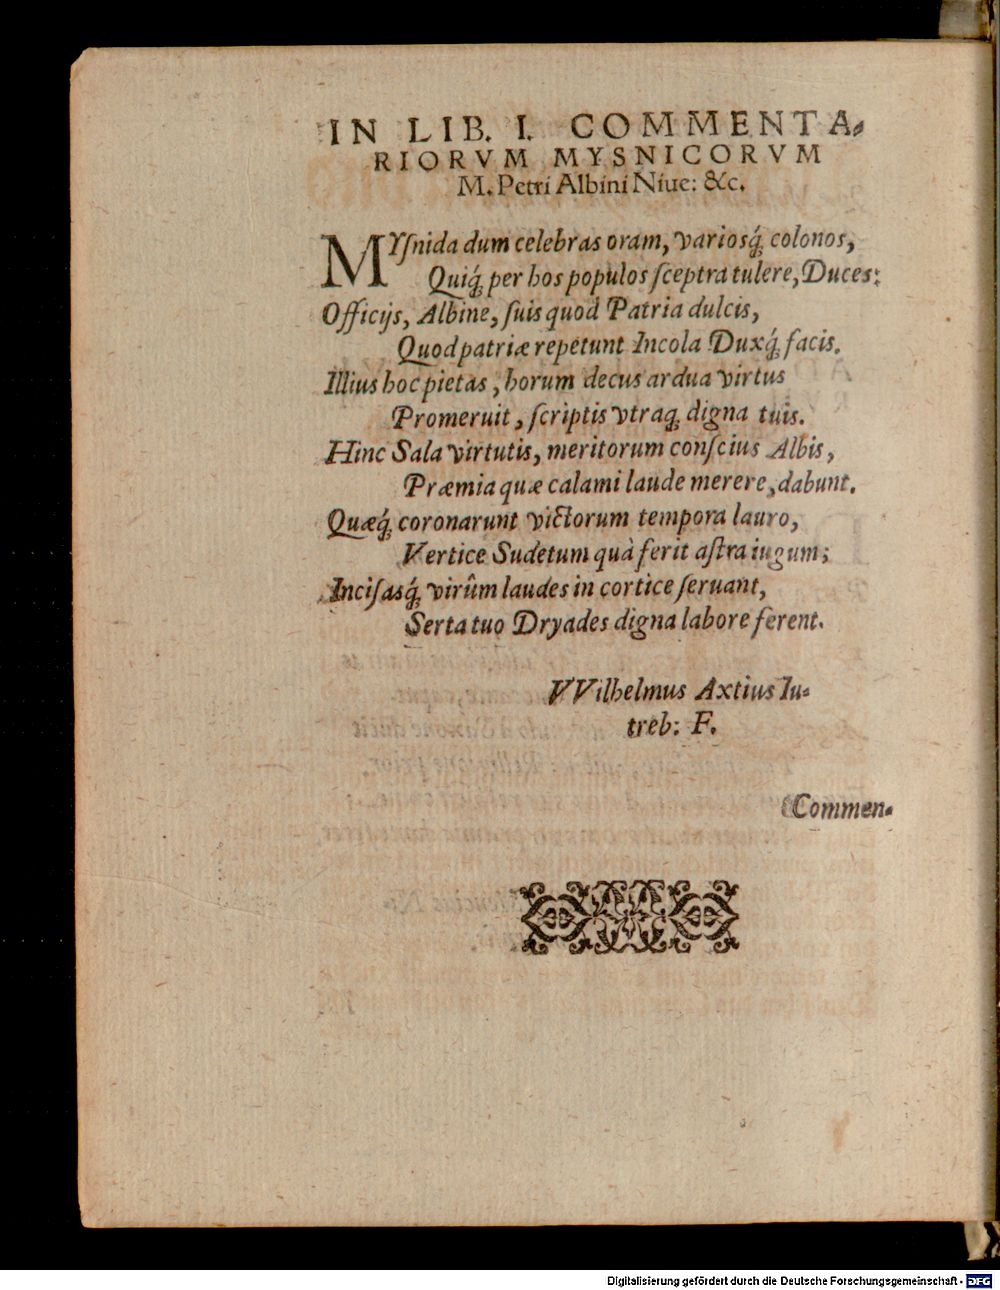 IN LIB. I. COMMENTA-
RIORVM MYSNICORVM
M. Petri Albini Niue: &c.
MYſnida dum celebras oram, varioſq́; colonos,
Quiq́; per hos populos ſceptra tulere, Duces:
Officijs, Albine, ſuis quod Patria dulcis,
Quod patriæ repetunt Incola Duxq́; facis.
Illius hoc pietas, horum decus ardua virtus
Promeruit, ſcriptis vtraq; digna tuis.
Hinc Sala virtutis, meritorum conſcius Albis,
Præmia quæ calami laude merere, dabunt.
Quæq́; coronarunt victorum tempora lauro,
Vertice Sudetum quà ferit aſtra iugum;
Inciſasq́; virûm laudes in cortice ſeruant,
Serta tuo Dryades digna labore ferent.
VVilhelmus Axtius Iu-
treb: F.
Commen-
Digitalisierung gefördert durch die Deutsche Forschungsgemeinschaft - DFG